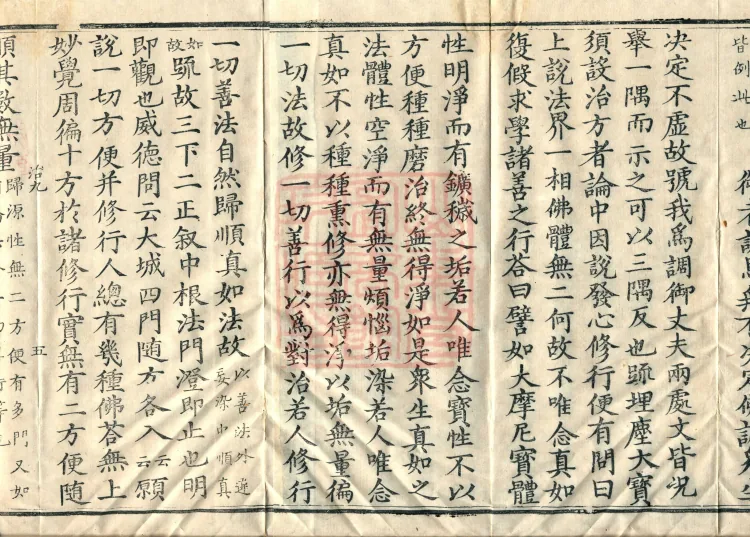 皆例此也
决定不虚故號我爲調御丈夫兩處文皆况
舉一隅而示之可以三隅反也䟽埋塵大寳
須設治方者論中因說發心修行便有問曰
上說法界一相佛體無二何故不唯念真如
復假求學諸善之行荅曰譬如大摩尼寳體
性明淨而有鑛穢之垢若人唯念寳性不以
方便種種磨治終無得淨如是衆生真如之
法體性空淨而有無量煩惱垢染若人唯念
真如不以種種熏修亦無得淨以垢無量徧
一切法故修一切善行以爲對治若人修行
一切善法自然歸順真如法故以善法外違妄染中順真
如故䟽故三下二正叙中根法門澄即止也明
即觀也威德問云大城四門隨方各入云云願
說一切方便并修行人總有幾種佛荅無上
妙覺周徧十方於諸修行實無有二方便隨
治九 五
順其數無量歸源性無二方便有多門又如